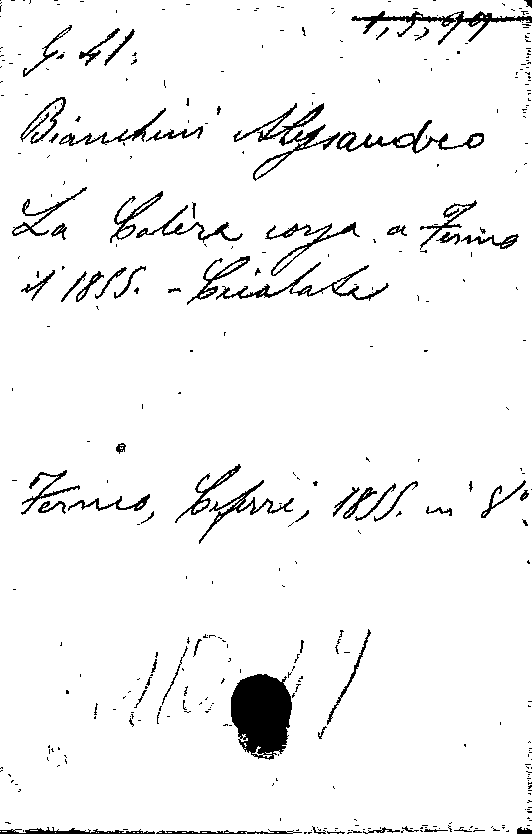 1,5,99
G. 41.
Bianchini Alessandro
La Colèra corsa a Fermo
il 1855. -
Fermo, Ciferri, 1855. in 8°.